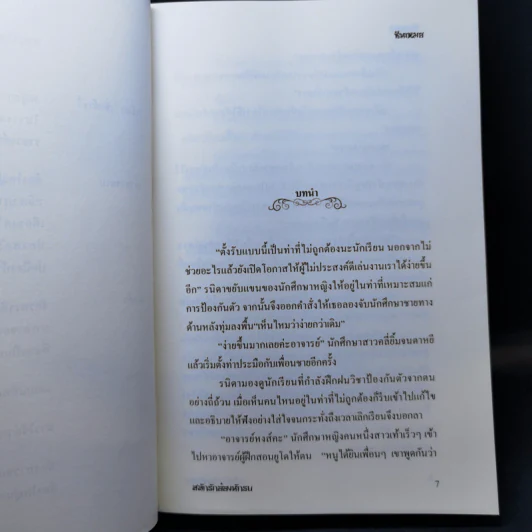 จันทหอม
บทนำ
"ตั้งรับแบบนี้เป็นท่าที่ไม่ถูกต้องนะนักเรียน นอกจากไม่
ช่วยอะไรแล้วยังเปิดโอกาสให้ผู้ไม่ประสงค์ดีเล่นงานเราได้ง่ายขึ้น
อีก" รนิดาขยับแขนของนักศึกษาหญิงให้อยู่ในท่าที่เหมาะสมแก่
การป้องกันตัว จากนั้นจึงออกคำสั่งให้เธอลองจับนักศึกษาชายทาง
ด้านหลังทุ่มลงพื้น"เห็นไหมว่าง่ายกว่าเดิม"
"ง่ายขึ้นมากเลยค่ะอาจารย์" นักศึกษาสาวคลี่ยิ้มจนตาหยี
แล้วเริ่มตั้งท่าประมือกับเพื่อนชายอีกครั้ง
รนิดามองดูนักเรียนที่กำลังฝึกฝนวิชาป้องกันตัวจากตน
อย่างถี่ถ้วน เมื่อเห็นคนไหนอยู่ในท่าที่ไม่ถูกต้องก็รีบเข้าไปแก้ไข
และอธิบายให้ฟังอย่างใส่ใจจนกระทั่งถึงเวลาเลิกเรียนจึงบอกลา
"อาจารย์หงส์คะ" นักศึกษาหญิงคนหนึ่งสาวเท้าเร็วๆ เข้า
ไปหาอาจารย์ผู้ฝึกสอนยูโดให้ตน "หนูได้ยินเพื่อนๆ เขาพูดกันว่า
7